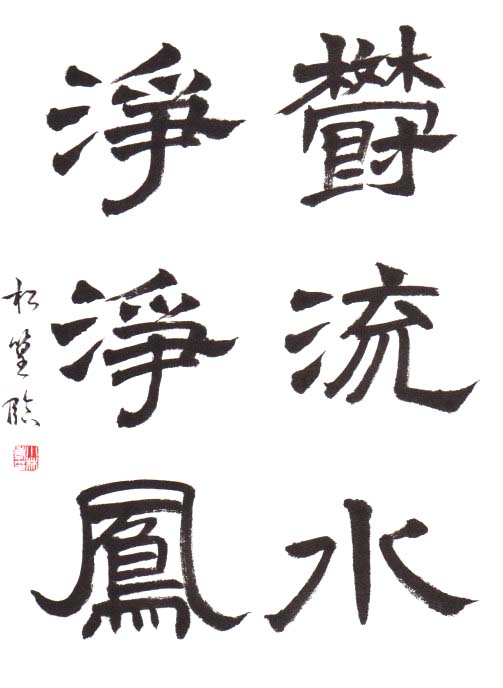 鬱流水
淨淨鳳
松臨